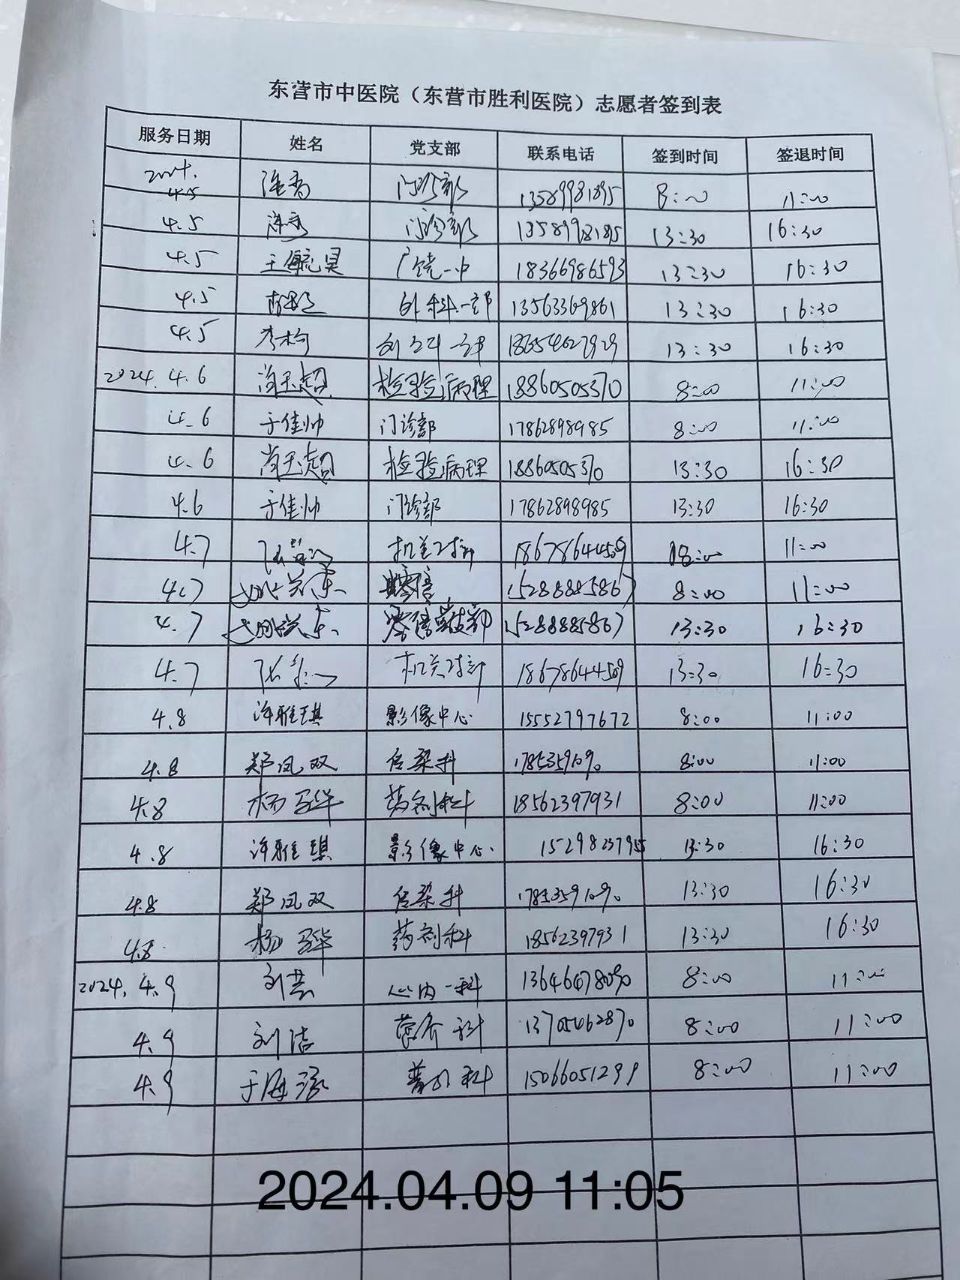 东营市中医院（东营市胜利医院）志愿者签到表
服务日期 姓名 党支部 联系电话 签到时间 签退时间
2024.4.5 门诊部 13589981895 8:00 11:00
4.5 门诊部 13589981895 13:30 16:30
4.5 广饶一中 18366986593 13:30 16:30
4.5 外科一部 13563369861 13:30 16:30
4.5 外科一部 18654627929 13:30 16:30
2024.4.6 肖玉超 检验病理 18860505370 8:00 11:00
4.6 于佳帅 门诊部 17862898985 8:00 11:00
4.6 肖玉超 检验病理 18860505370 13:30 16:30
4.6 于佳帅 门诊部 17862898985 13:30 16:30
4.7 18678644509 18:00 11:00
4.7 15288885867 8:00 11:00
4.7 15288885867 13:30 16:30
4.7 18678644509 13:30 16:30
4.8 许雅琪 影像中心 15552797672 8:00 11:00
4.8 郑凤双 8:00 11:00
4.8 杨 药剂科 18562397931 8:00 11:00
4.8 许雅琪 影像中心 13:30 16:30
4.8 郑凤双 13:30 16:30
4.8 杨 药剂科 18562397931 13:30 16:30
2024.4.9 刘芸 心内一科 8:00 11:00
4.9 刘洁 科 13705462870 8:00 11:00
4.9 于海 普外科 15066051299 8:00 11:00
2024.04.09 11:05